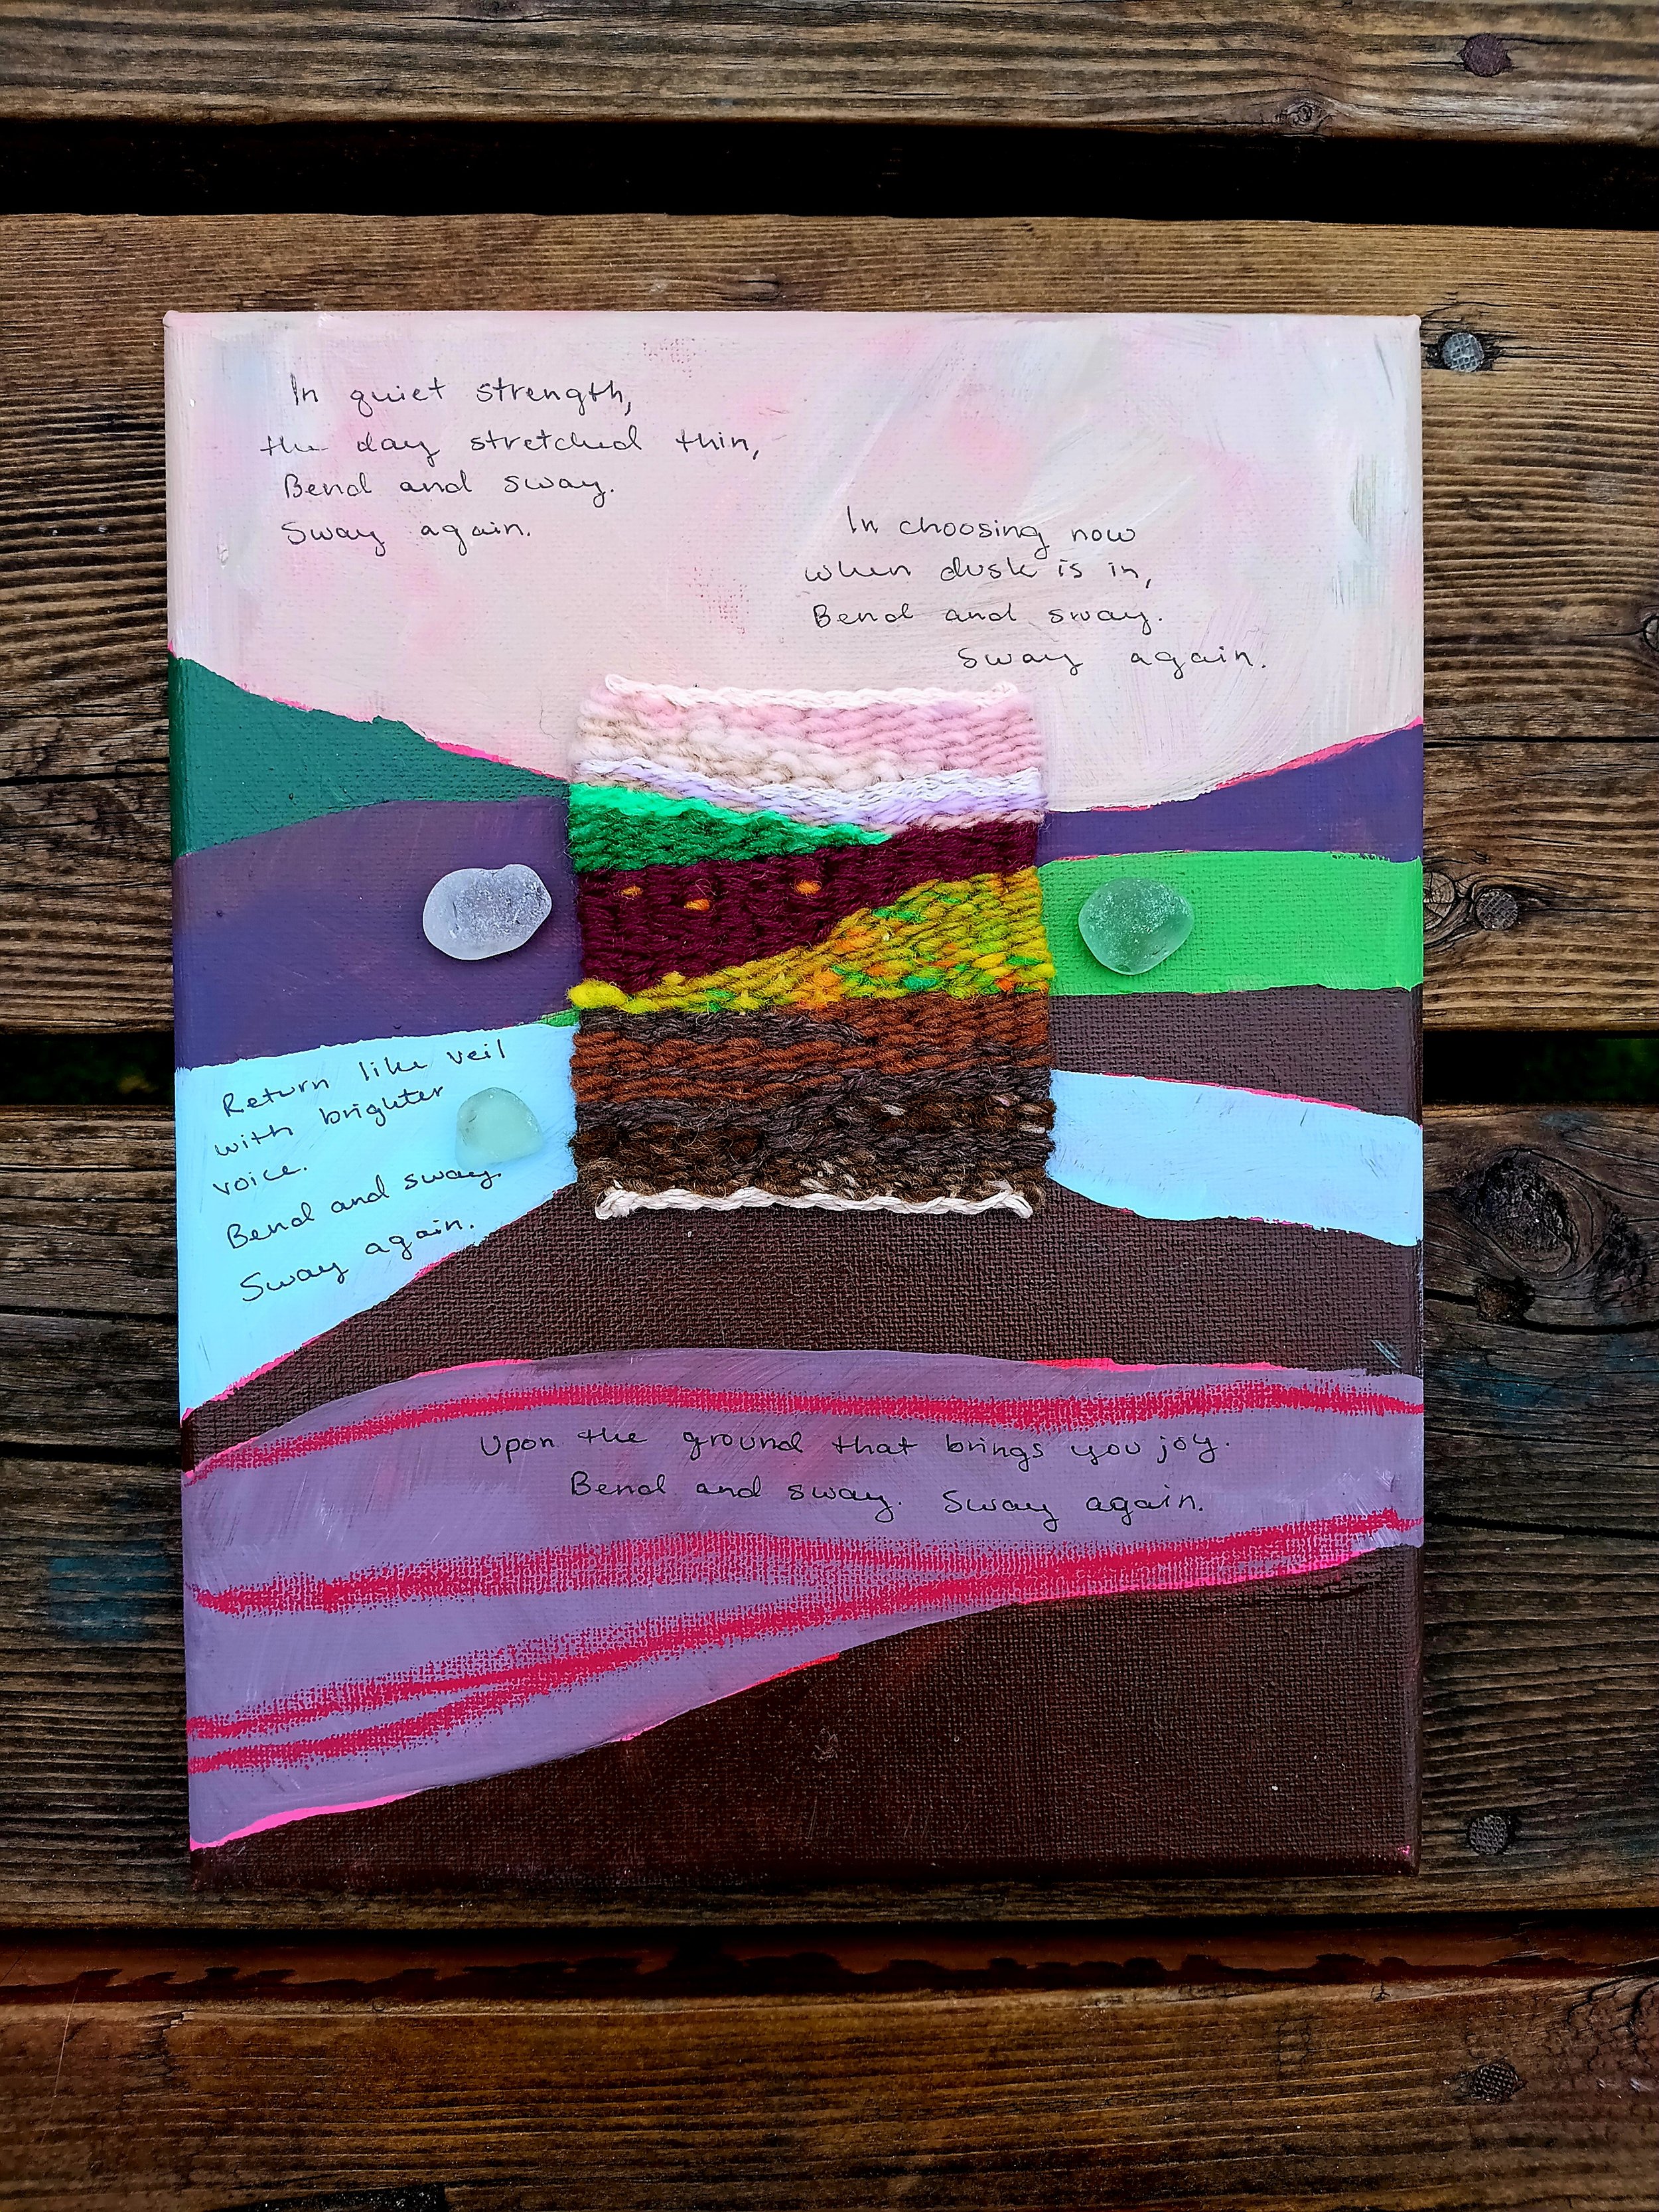 In quiet strength,
the day stretched thin,
Bend and sway.
Sway again.
In choosing now
when dusk is in,
Bend and sway.
Sway again.
Return like veil
with brighter
voice.
Bend and sway.
Sway again.
Upon the ground that brings you joy.
Bend and sway. Sway again.